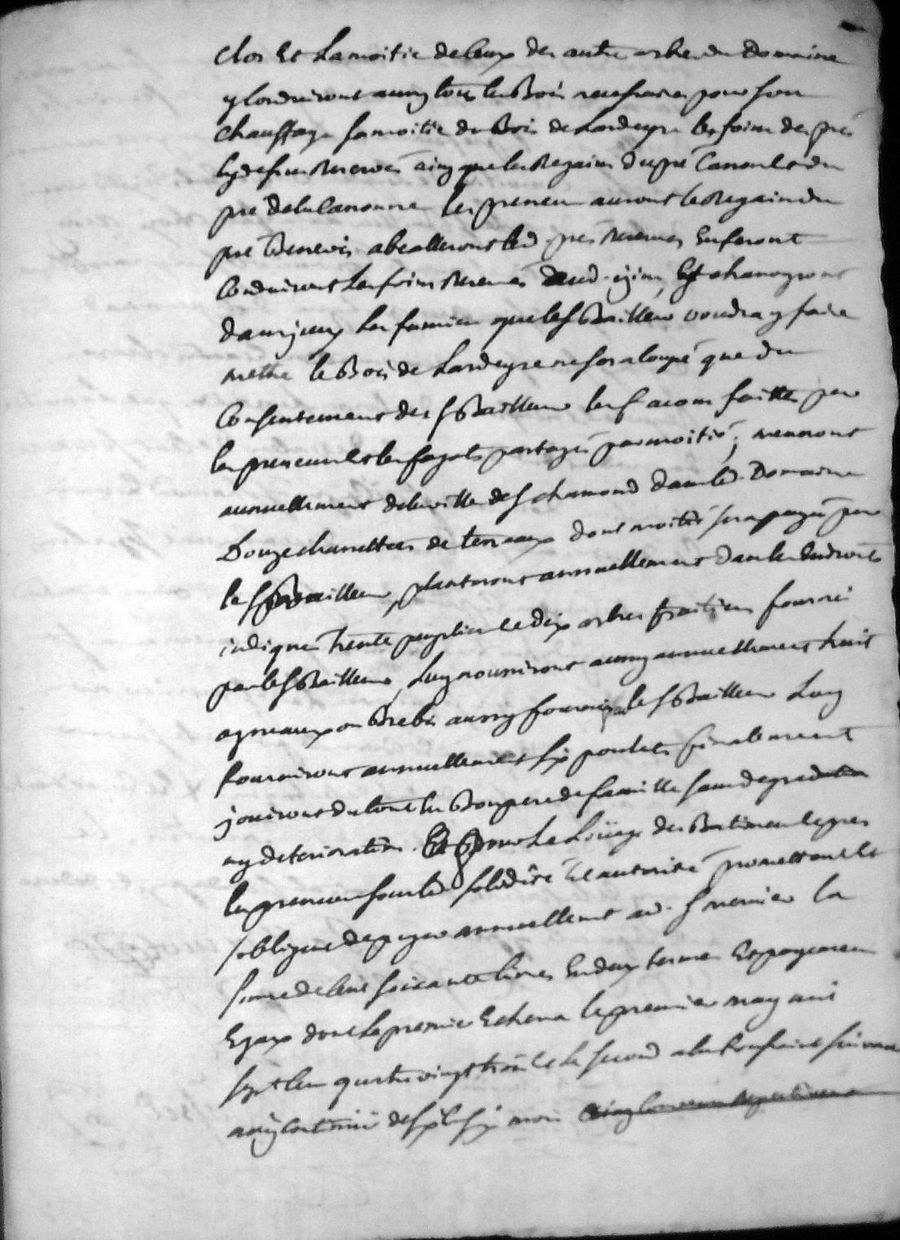 clos Et La moitié de Ceux des autres arbres du Domaine
y Conduiront aussy tous les Bois necessaires pour son
chauffage La moitié du Bois de Lardeyre les foins des prés
cy dessus Reservés ainsy que les Regains du pré Canon et du
pré de la Canonne les preneurs auront le Regain du
pré Benevis abealleront led. prés Reserves En feront
Conduiront Les foins Reservés aud. Et charroyront
dans iceux Les fumiers que led. s. Bailleur voudra y faire
mettre le Bois de Lardeyre ne sera Coupé que du
Consentement des s. Bailleur les facons faittes par
les preneurs et les fagots partagés par moitié, meneront
annuellement de la ville de s. chamond dans led. Domaine
Douze charettées de terreaux dont moitié sera payée par
le s. Bailleur, planteront annuellement dans les Endroits
indiqués trente peupliers et dix arbres fruitiers fourni
par le s. Bailleur, Luy nourriront aussy annuellement huit
agneaux ou Brebis aussy fournis par le s. Bailleur Luy
fourniront annuellement six poulets finalement
jouiront du tout En Bon pere de famille sans degradation
ny deterioration. Et pour Le Loüage des Bastiments et prés
les preneurs sous lad. solidité Et autorité promettent et
s'obligent de payer annuellement au s. la
somme de Cent soixante livres En deux termes Et payements
Egaux dont Le premier Echera le premier may mil
sept Cent quatre vingt trois et Le second a la Toussaint suivant
ainsy Continué de six En six mois